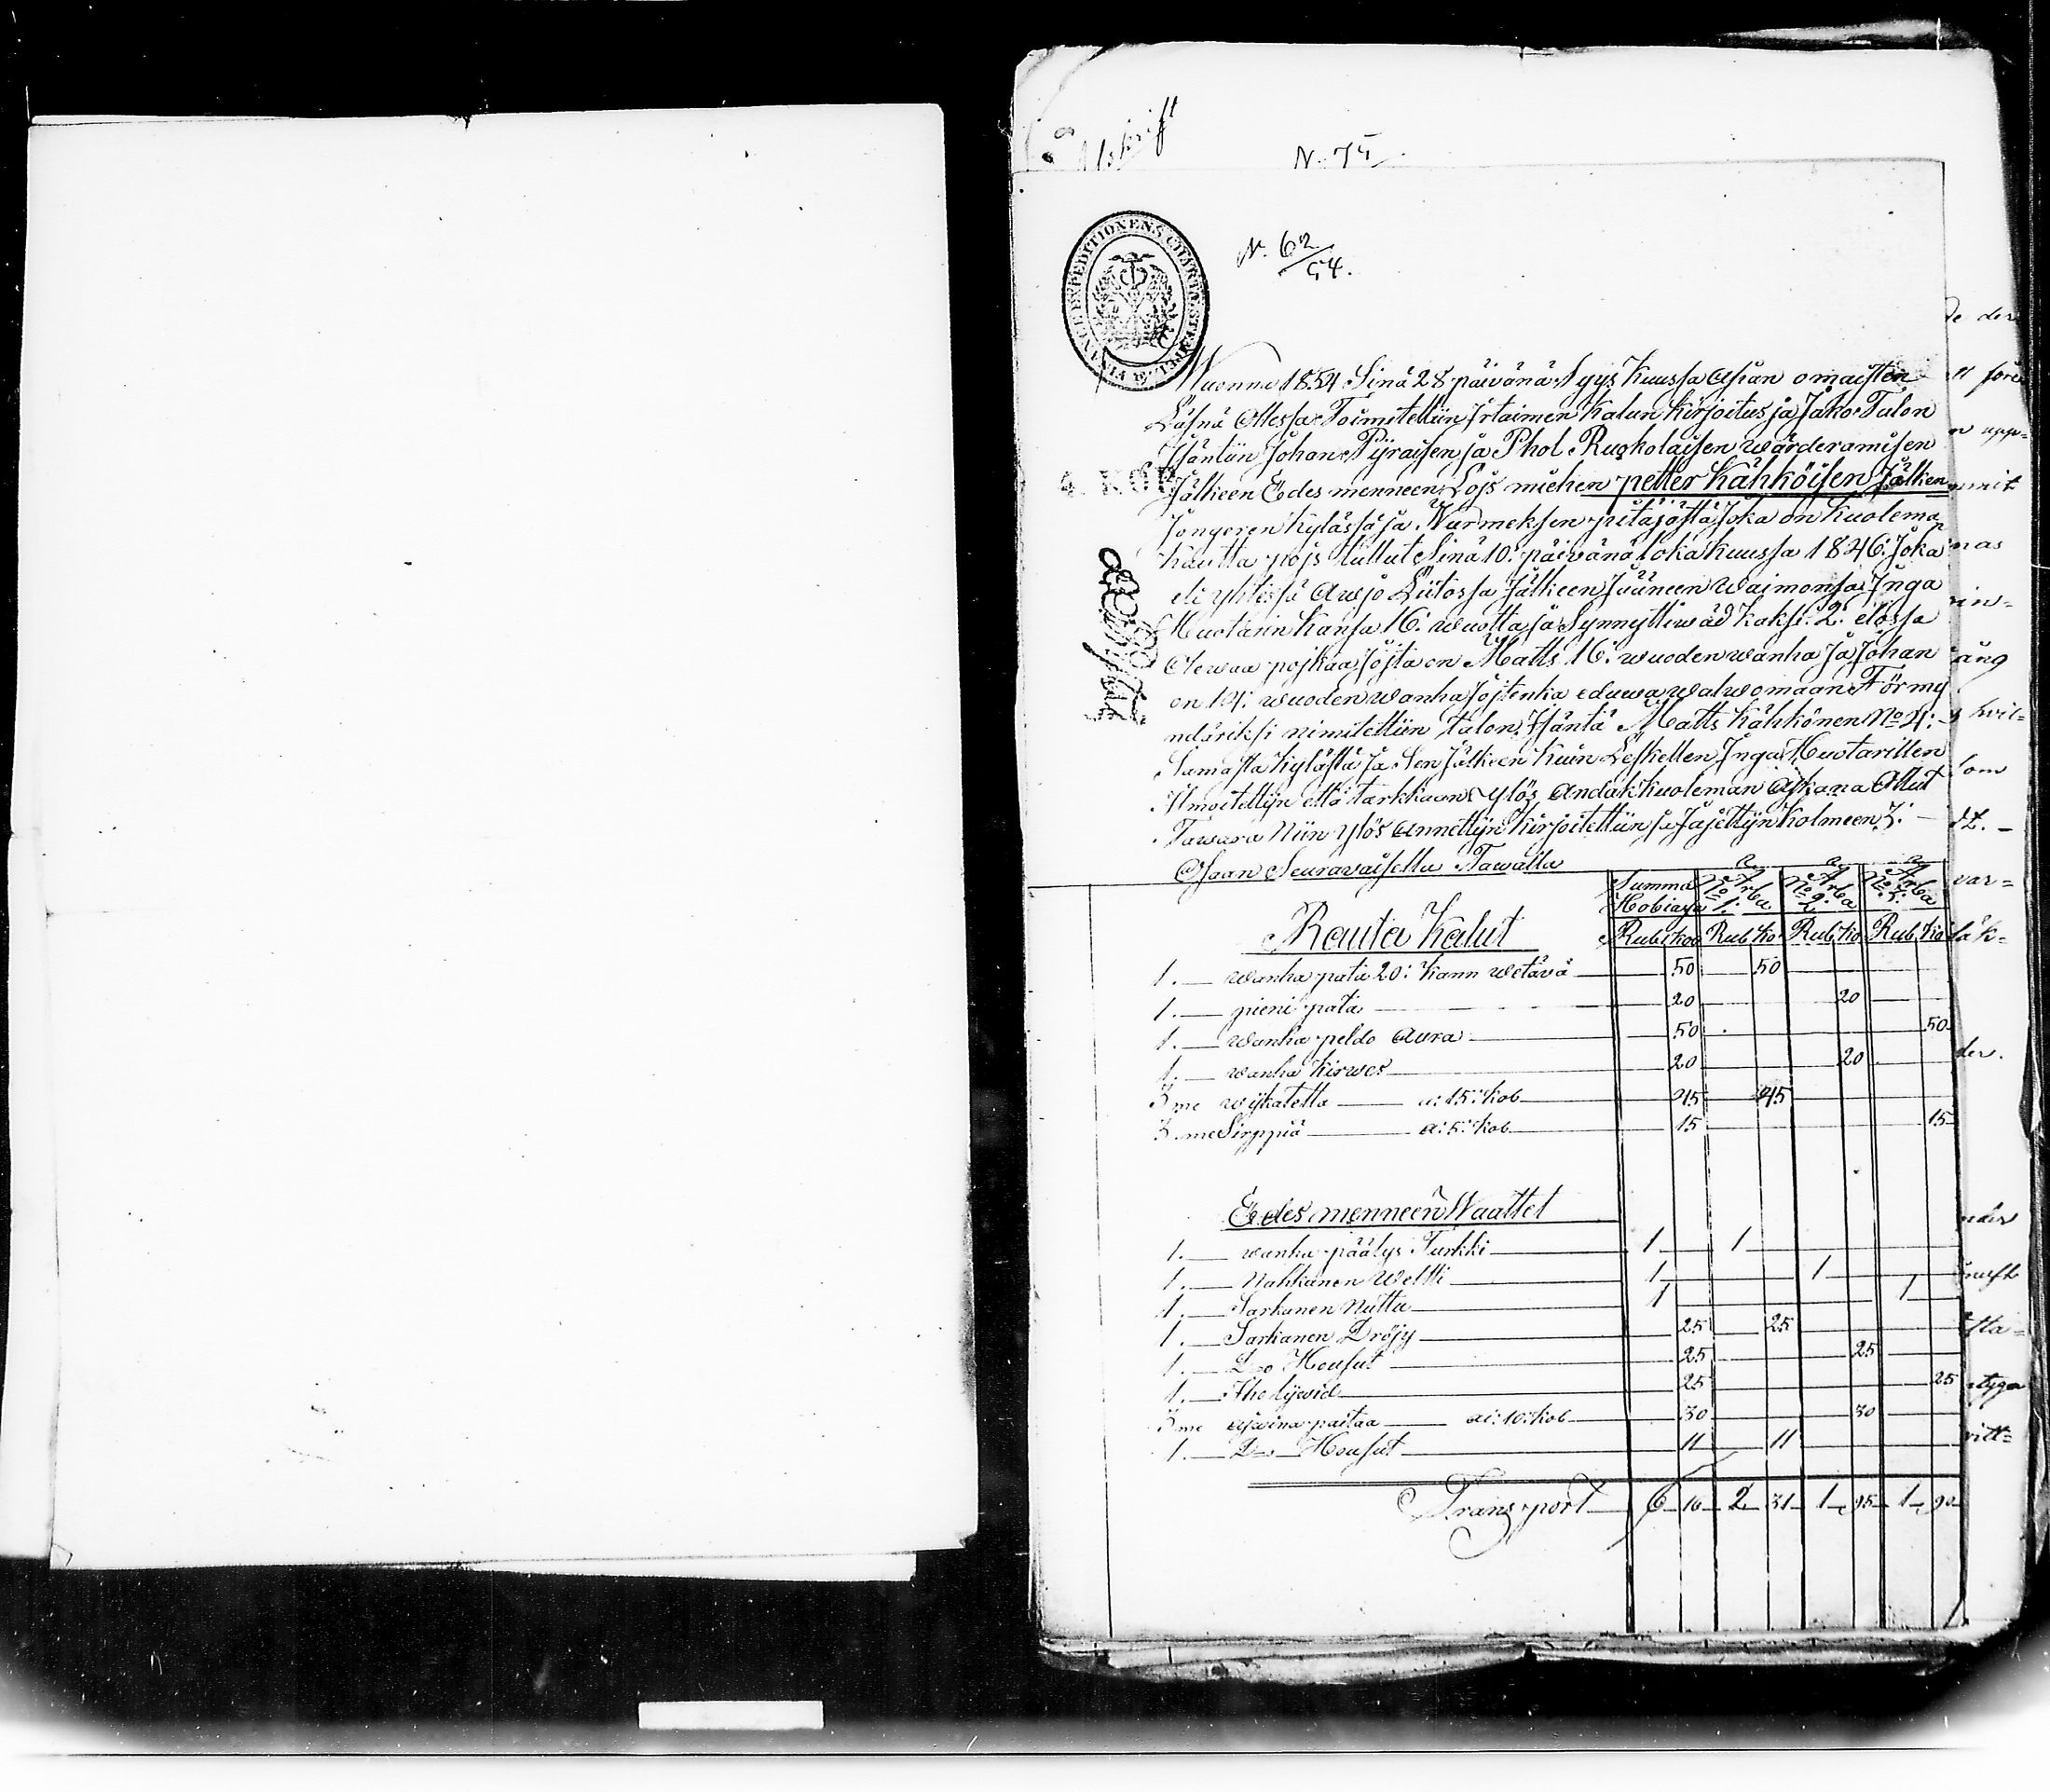 Afskrift
N. 75
N. 62/54.
Wuonna 1854 Sinä 28 päivänä Syys Kuussa Asian omaisten
Läsnä Ollessa Toimitettiin Irtaimen Kalun Kirjoitus ja Jako Talon
Isäntiin Johan Pÿraisen ja Phol Ruokolaisen wärderamisen
4. KOP.
Jälkeen Edes menneen Lojs miehen petter Kähköisen Jälken
Jongeren Kylässä ja Nurmeksen pitäjästä Joka on Kuoleman
Kautta pojs tullut Sinä 10: päivänä loka kuussa 1846: Joka
eli yhtessä Awjo Liitossa Jälkeen Jääneen Waimonsa Inga
Huotarin Kansa 16: wuotta ja Synnyttiwäd Kaksi 2: elossa
Olewaa pojkaa Jojsta on Matts 16: wuoden wanha Ja Johan
on 14: wuoden wanha Jojtenka eduwa walwomaan Förmy
ndäriksi nimitettiin talon Isäntä Matts Kähkönen No 4:
Samasta Kylästä Ja Sen Jälkeen Kuin Leskellen Inga Huotarillen
Ilmoitettijn että tarkkaan Ylös Andak Kuoleman Ajkana Ollut
Tawara Niin Ylös Annettijn Kirjoitettiin ja Jajettijn Kolmeen 3:
Osaan Seurawaisella Tawalla
Summa Hobiasa Arba No 1: Arba No 2: Arba No 3:
Rauta Kalut Rub kob Rub Ko Rub Ko Rub Ko
1. wanha pata 20: Kann wetävä 50 50
1. pieni pata 20 20
1. wanha peldo Aura 50 50
1. wanha Kirwes 20 20
3 me wijkatetta a: 15: Kob 45 45
3. me Sirppiä a: 5: Kob 15 15
Edes menneen Waattet
1. wanha päälys Turkki 1 1
1. Nahkanen Weltti 1 1
1. Sarkanen Nuttu 1 1
1. Sarkanen Dröjy 25 25
1. Do Housut 25 25
1. Iho lijwid 25 25
3 me Ajwina paitaa a: 10: Kob 30 30
1. Do Housut 11 11
Transport 6 16 2 31 1 95 1 90